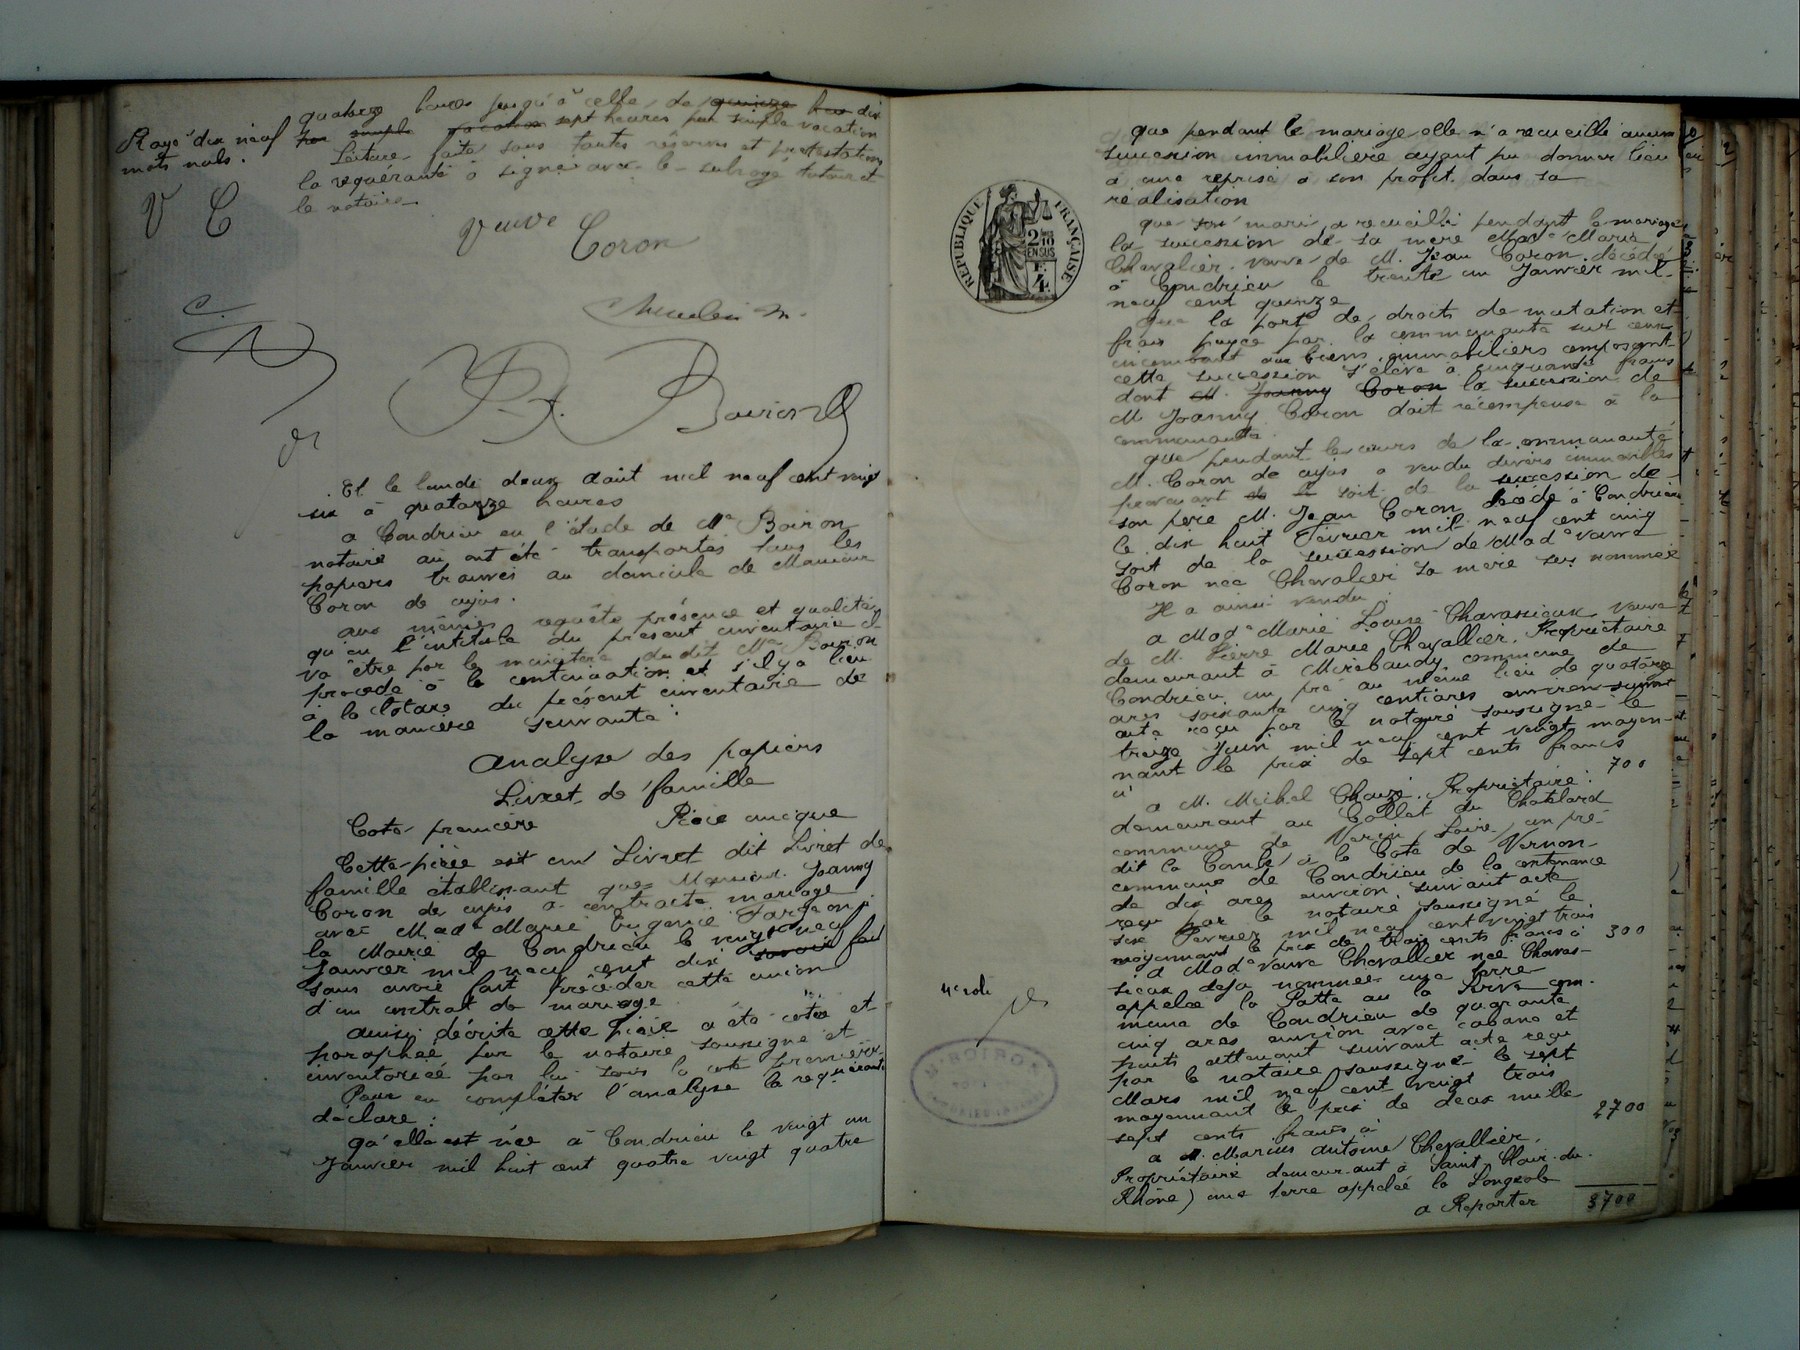 quatorze heures jusqu'à celle de quinze heu dix
par simple vacation sept heures par simple vacation
Rayé dix neuf
mots nuls.
Lecture faite sous toutes réserves et protestations
la requérante a signé avec le subrogé tuteur et
le notaire
V C
Veuve
Coron
Boiron
Et le lundi deux Aout mil neuf cent vingt
six à quatorze heures
a Condrieu en l'étude de Me Boiron
notaire où ont été transportés tous les
papiers trouvés au domicile de Monsieur
Coron de cujus.
aux mêmes requête présence et qualités
qu'en l'intitulé du présent inventaire il
va être par le ministère dudit Me Boiron
procédé à la continuation et s'il y a lieu
à la cloture du présent inventaire de
la manière suivante :
Analyse des papiers
Livret de famille
Cote première Pièce unique
Cette pièce est un Livret dit Livret de
famille établissant que Monsieur Joanny
Coron de cujus a contracté mariage
avec Made Marie Eugenie Fargeon à
la Mairie de Condrieu le vingt neuf
Janvier mil neuf cent dix savoir fait
sans avoir fait précéder cette union
d'un contrat de mariage
Ainsi décrite cette pièce a été cotée et
paraphée par le notaire soussigné et
inventoriée par lui sous la cote première
Pour en compléter l'analyse la requérante
déclare :
qu'elle est née à Condrieu le vingt un
Janvier mil huit cent quatre vingt quatre
que pendant le mariage elle n'a recueilli aucune
succession immobilière ayant pu donner lieu
à une reprise à son profit dans sa
réalisation
RÉPUBLIQUE FRANÇAISE
2 10
EN SUS
E.
4.
que son mari a recueilli pendant le mariage
la succession de sa mère Made Marie
Chevalier veuve de M. Jean Coron décédée
à Condrieu le trente un Janvier mil
neuf cent quinze
que la part de droits de mutation et
frais payée par la communauté sur ceux
incombant aux biens immobiliers composant
cette succession s'élève à cinquante francs
dont M. Joanny Coron la succession de
M. Joanny Coron doit récompense à la
communauté.
que pendant le cours de la communauté
M. Coron de cujus a vendu divers immeubles
provenant soit de la succession de
son père M. Jean Coron décédé à Condrieu
le dix huit Février mil neuf cent cinq
soit de la succession de Made veuve
Coron née Chevalier sa mère sus nommée
Il a ainsi vendu :
a Made Marie Louise Chavassieux veuve
de M. Pierre Marie Chevallier, Propriétaire
demeurant à Mirebaudy commune de
Condrieu un pré au même lieu de quatorze
ares soixante cinq centiares environ suivant
acte reçu par le notaire soussigné le
treize Juin mil neuf cent vingt moyen-
nant le prix de sept cents francs
ci 700
a M. Michel Chaizé, Propriétaire
demeurant au Collet du Chatelard
commune de Verin (Loire) un pré
dit la Combe à la Cote de Vernon
commune de Condrieu de la contenance
de dix ares environ suivant acte
reçu par le notaire soussigné le
six Février mil neuf cent vingt trois
moyennant le prix de trois cents francs ci 300
a Made Veuve Chevallier née Chavas-
sieux déjà nommée une terre
appelée la Patte au la com-
mune de Condrieu de quarante
cinq ares environ avec cabane et
puits attenant suivant acte reçu
par le notaire soussigné le sept
Mars mil neuf cent vingt trois
moyennant le prix de deux mille
sept cents francs ci 2700
a M. Marius Antoine Chevallier,
Propriétaire demeurant à Saint Clair du
Rhône) une terre appelée la
a Reporter 3700
4e role